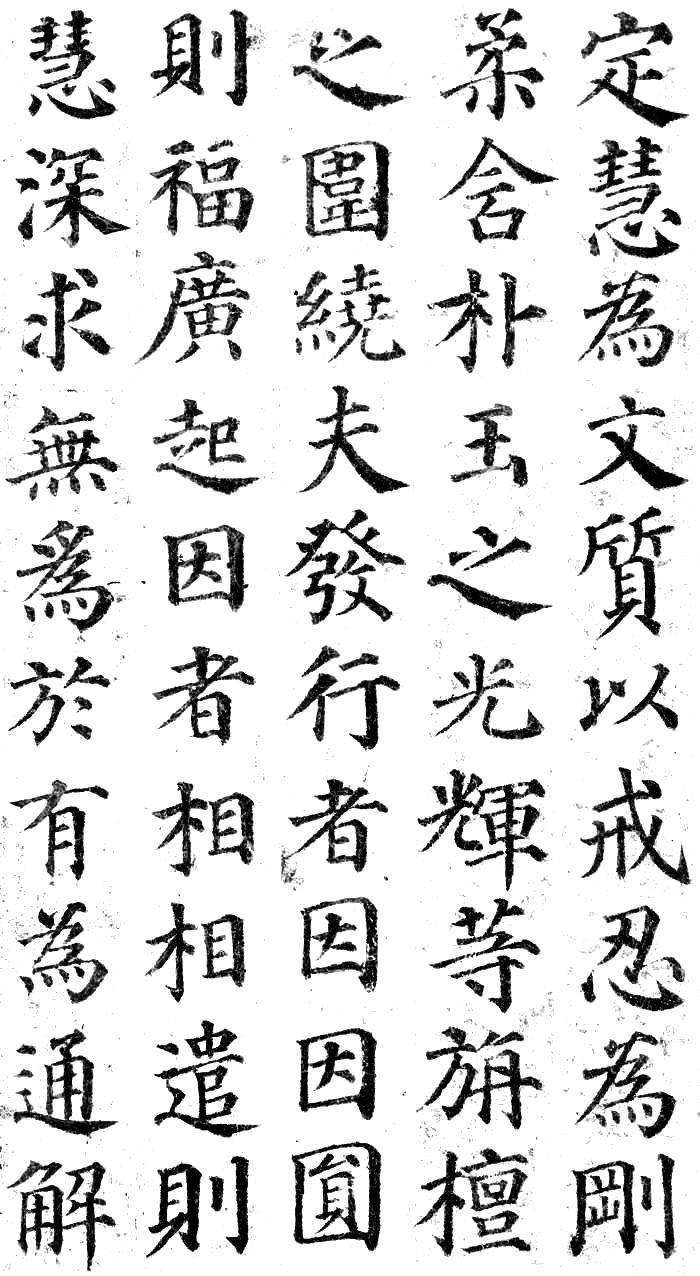 定慧為文質以戒忍為剛
柔含朴玉之光輝等旃檀
之圍繞夫發行者因因圓
則福廣起因者相相遣則
慧深求無爲於有為通解